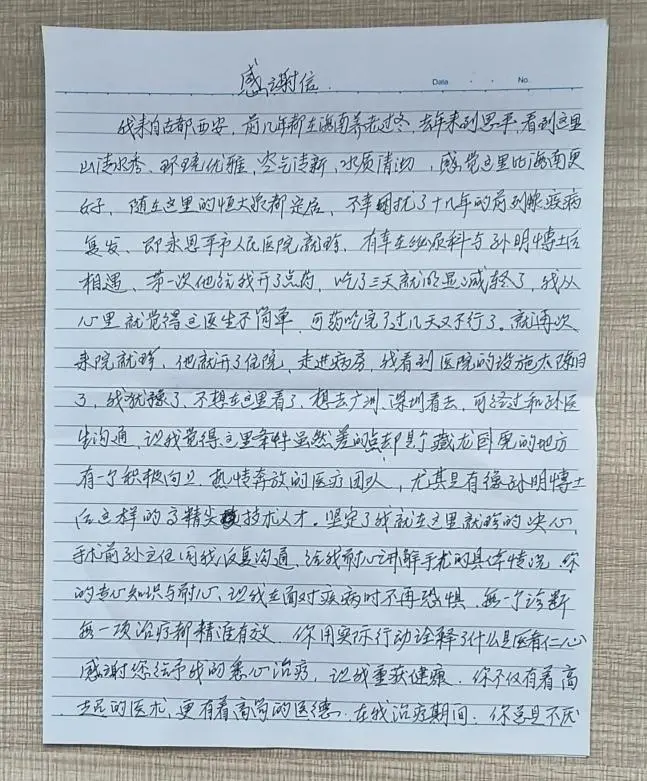 感谢信
Data · · No.
我来自古都西安，前几年都在海南养老过冬，去年来到恩平，看到这里
山清水秀、环境优雅、空气清新、水质清泖，感觉这里比海南更
好，随在这里的恒大泉都定居，不幸困扰了十几年的前列腺疾病
复发、即来恩平市人民医院就诊，有幸在泌尿科与孙明博士后
相遇、第一次他给我开了点药，吃了三天就明显减轻了，我从
心里就觉得这医生不简单，可药吃完了过几天又不行了。就再次
来院就诊，他就开了住院，走进病房，我看到医院的设施太陈旧
了，我犹豫了、不想在这里看了，想去广洲、深圳看去，可经过和孙医
生沟通，让我觉得这里条件虽然差的点却是个藏龙卧虎的地方
有一个积极向上、热情奔放的医疗团队，尤其是有强孙明博士
后这样的高精尖技术人才。坚定了我就在这里就诊的决心，
手术前孙主任同我反复沟通、给我耐心讲解手术的具体情况，你
的专心知识与耐心、让我在面对疾病时不再恐惧，每一个诊断
每一项治疗都精准有效，你用实际行动诠释了什么是医者仁心
感谢您给予我的悉心治疗，让我重获健康．你不仅有着高
超的医术，更有着高尚的医德．在我治疗期间．你总是不厌